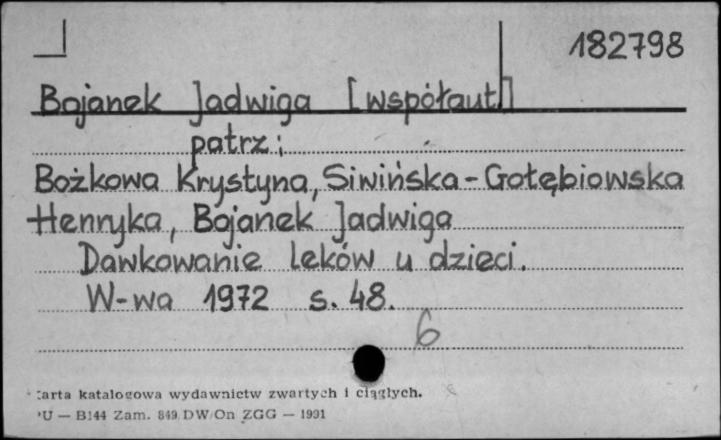 182798
Bojanek Jadwiga [współaut]
patrz:
Bożkowa Krystyna, Siwińska-Gołębiowska
Henryka, Bojanek Jadwiga
Dawkowanie leków u dzieci.
W-wa 1972 s. 48.
6
arta katalogowa wydawnictw zwartych i ciągłych.
U — B144 Zam. 849 DW/On ZGG — 1991